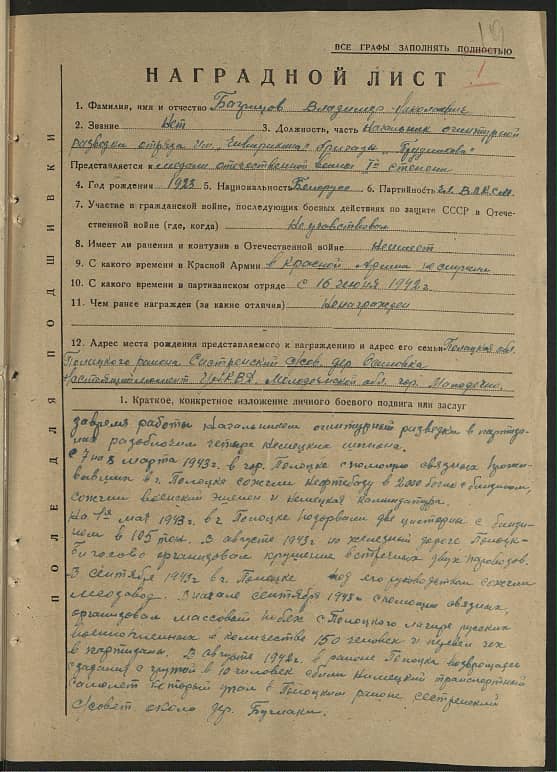 19
ВСЕ ГРАФЫ ЗАПОЛНЯТЬ ПОЛНОСТЬЮ
1
НАГРАДНОЙ ЛИСТ
1. Фамилия, имя и отчество Владимир Николаевич
2. Звание Нет 3. Должность, часть Начальник агентурной
разведки отряда им. бригады
Представляется к медали отечественной войны степени
4. Год рождения 1923 5. Национальность Белорус 6. Партийность чл. В.Л.К.С.М.
7. Участие в гражданской войне, последующих боевых действиях по защите СССР и Отече-
ственной войне (где, когда) Не участвовал
8. Имеет ли ранения и контузии в Отечественной войне Неимеет
9. С какого времени в Красной Армии в Красной Армии не служил
10. С какого времени в партизанском отряде с 16 июня 1942 г.
11. Чем ранее награжден (за какие отличия) Ненагражден
12. Адрес места рождения представляемого к награждению и адрес его семьи Полоцкая обл.
Полоцкого района с/сов. дер. Осиновка
Молодечненской обл. гор. Молодечно.
1. Краткое, конкретное изложение личного боевого подвига или заслуг
за время работы Начальником агентурной разведки в партиза-
нах разоблачил четыре немецких шпиона.
С 7 на 8 марта 1943 г. в гор. Полоцке с помощью связных
в г. Полоцке сожгли Нефтебазу в 2000 бочек с бензином,
сожгли и Немецкая Комендатура.
На 1е мая 1943 г. в г. Полоцке подорвали две цистерны с бензи-
ном в 105 тон. В августе 1943 г. на железной дороге Полоцк-
организовал крушение встречных двух паровозов.
В сентября 1943 г. в г. Полоцке под его руководством сожгли
Вначале сентября 1943 г. с помощью связных,
организовал массовый побег с Полоцкого лагеря русских
военнопленных в количестве 150 человек и перевел их
в партизаны. В августе 1942 г. в районе Полоцка возвращаясь
с задания с группой в 10 человек сбили Немецкий транспортный
самолет который упал в Полоцком районе
с/совет около дер.
ПОЛЕ ДЛЯ ПОДШИВКИ